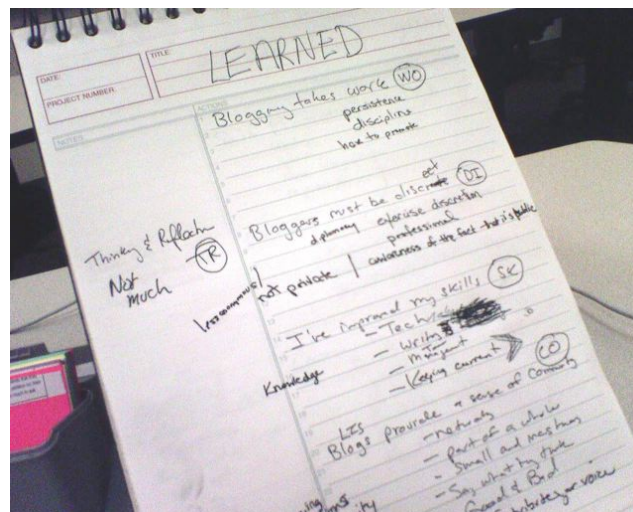 DATE:
TITLE:
LEARNED
PROJECT NUMBER:
NOTES
ACTIONS
Blogging takes work WO
persistence
discipline
how to promote
Bloggers must be discreet DI
diplomacy exercise discretion
professional
not private / awareness of the fact that it's public
Thinking & Reflection TR
Not
much
I've improved my skills SK
- Tech
- Writing
- Management
- Keeping current
Knowledge
CO
LIS
Blogs provide a sense of community
- networking
- part of a whole
- Small and
- Say what they think
Good & Bad
your voice